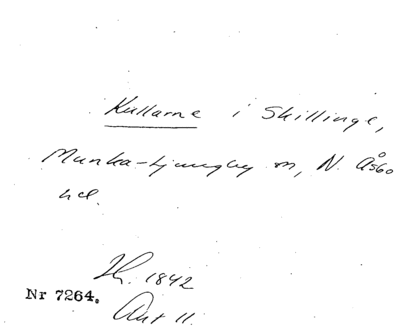 Kullarne i Skillinge,
Munka-Ljungby sn, N. Åsbo
hd.
1842
Nr 7264.
Akt 11.